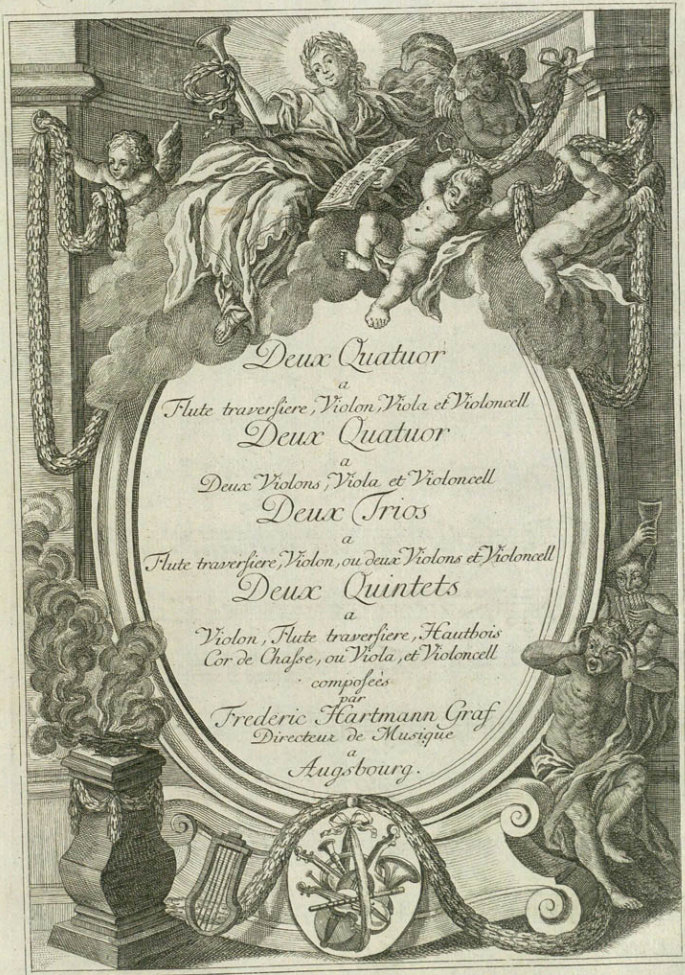 Deux Quatuor
a
Flute traversiere, Violon, Viola et Violoncell
Deux Quatuor
a
Deux Violons, Viola et Violoncell
Deux Trios
a
Flute traversiere, Violon, ou deux Violons et Violoncell
Deux Quintets
a
Violon, Flute traversiere, Hautbois
Cor de Chasse, ou Viola, et Violoncell
composeès
par
Frederic Hartmann Graf
Directeur de Musique
a
Augsbourg.